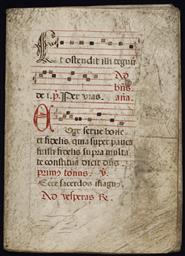 Et ostendit illi regnū
Ad
bn̄s
de i. p̄. Per vias. an̄a.
A
Uge serve bone
et fidelis quia super pauca
fuisti fidelis supra multa
te constituā dicit dn̄s.
primus tonus. v̄.
Ecce sacerdos magn
Ad vesperas